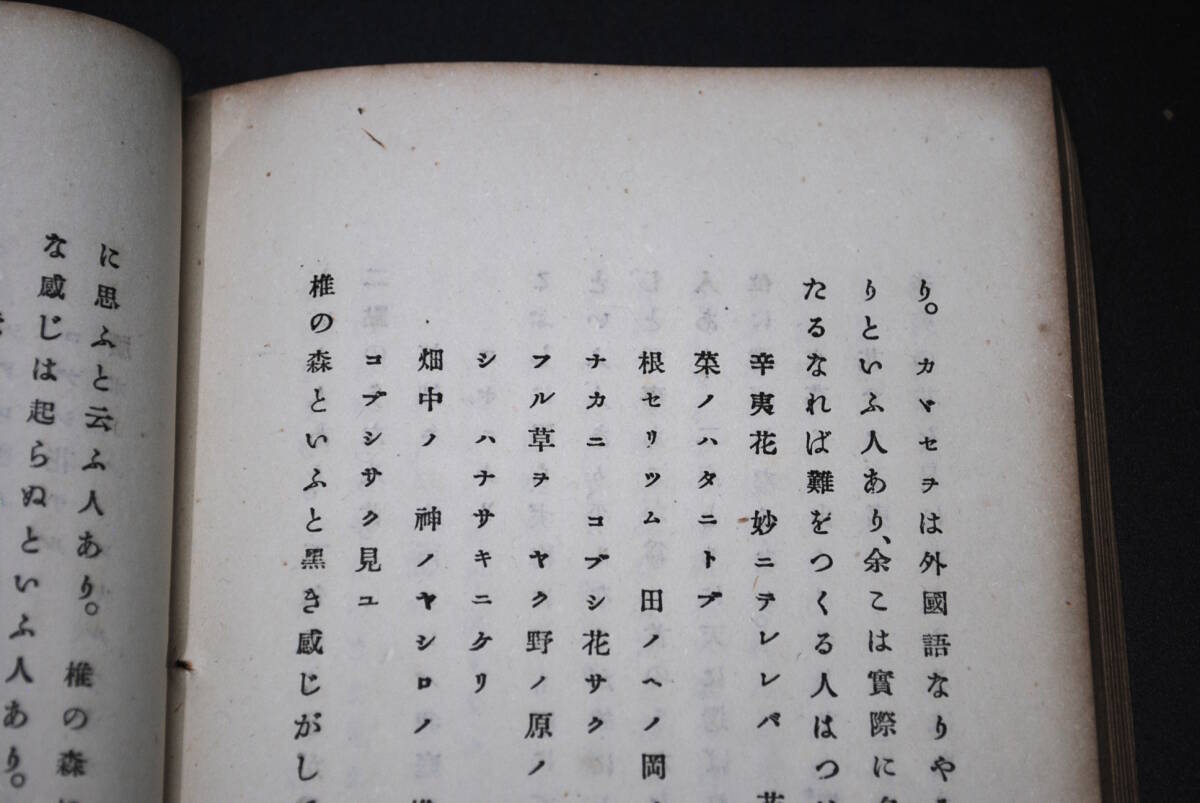 り。カマセヲは外國語なりや
りといふ人あり、余こは實際に
たるなれば難をつくる人はつ
辛夷花 妙ニテレレバ
菜ノハタニトブ
根セリツム 田ノヘノ岡
ナカニ コブシ花サク
フル草ヲ ヤク野ノ原ノ
シ ハナサキニケリ
畑中ノ 神ノヤシロノ
コブシサク見ユ
椎の森といふと黑き感じがし
に思ふと云ふ人あり。椎の森
な感じは起らぬといふ人あり。